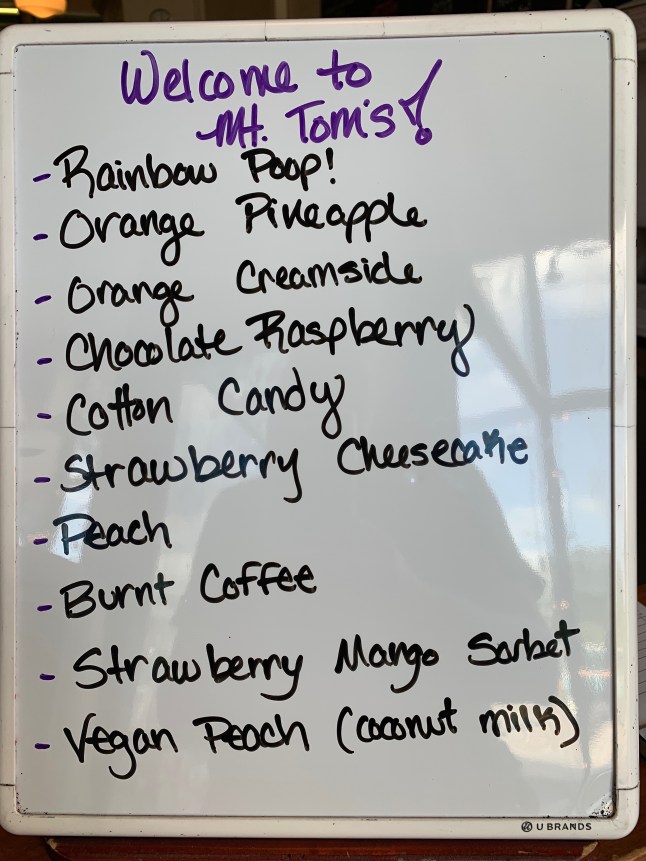 Welcome to
Mt. Tom's!
- Rainbow Poop!
- Orange Pineapple
- Orange Creamside
- Chocolate Raspberry
- Cotton Candy
- Strawberry Cheesecake
- Peach
- Burnt Coffee
- Strawberry Mango Sorbet
- Vegan Peach (coconut milk)
U BRANDS